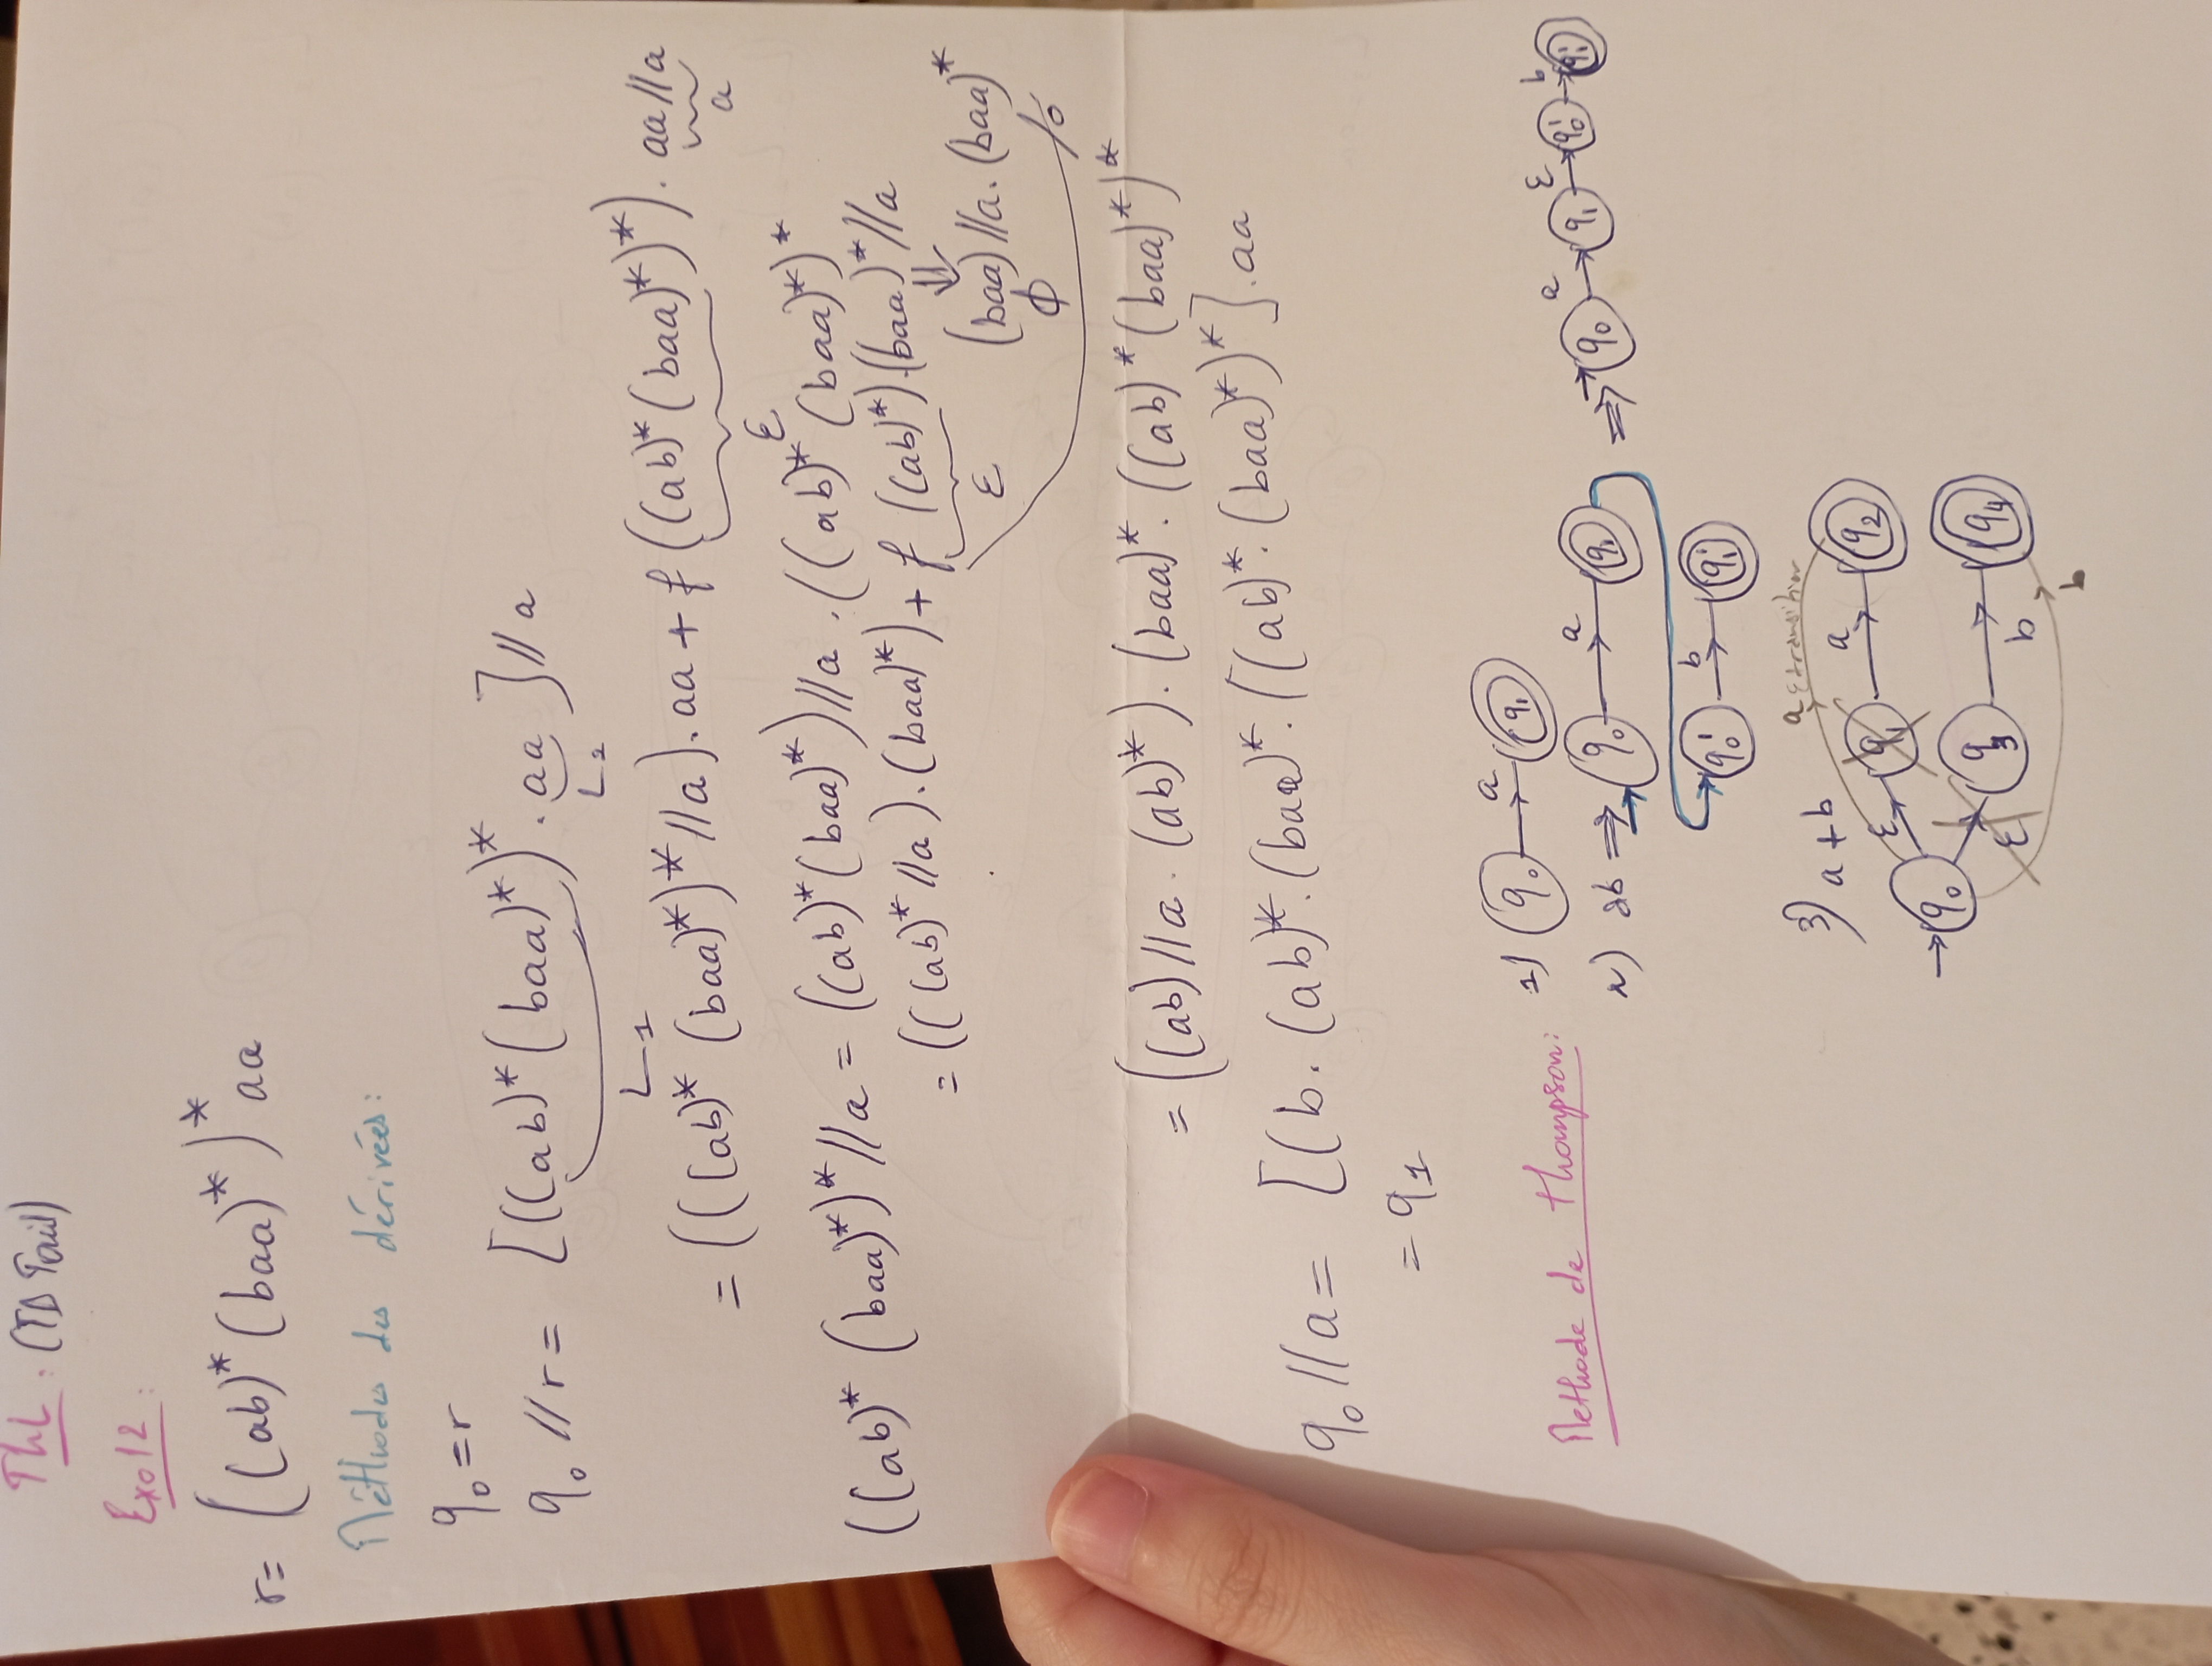 ThL : (TD Tail)
Exo 12 :
r = ((ab)* (baa)*)* aa
Méthodes des dérivées :
q₀ = r
q₀ // r = [((ab)* (baa)*)* . aa] // a
L₁ L₂
= (((ab)* (baa)*)* // a) . aa + f((ab)* (baa)*)*) . aa // a
ε a
((ab)* (baa)*)* // a = ((ab)* (baa)*) // a . ((ab)* (baa)*)*
= (((ab)* // a) . (baa)*) + f((ab)*) . (baa)* // a
ε ⇓
(baa) // a . (baa)*
ϕ
= ((ab) // a . (ab)*) . (baa)* . ((ab)* (baa)*)*
q₀ // a = [(b . (ab)* . (baa)* . ((ab)* . (baa)*)*] . aa
= q₁
Methode de thompson :
1) q₀ a q₁
2) ab ⇒ q₀ a q₁ ⇒ q₀ a q₁ ε q₀' b q₁'
q₀' b q₁'
3) a + b
a ε transition
q₀ ε q₁ a q₂
ε q₃ b q₄
b